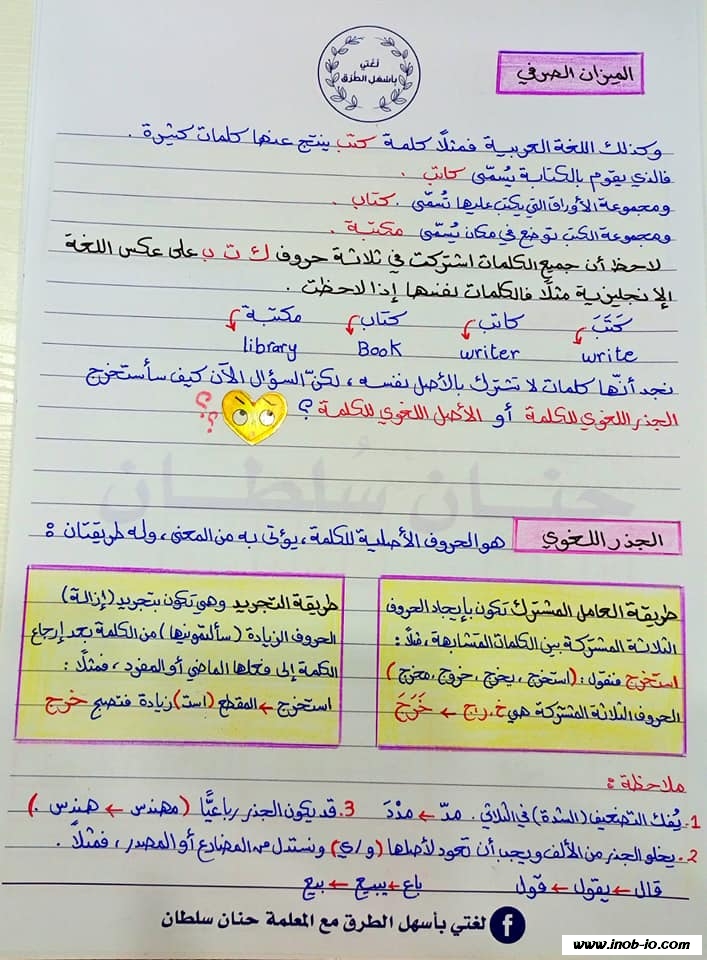 لغتي
بأسهل الطرق
الميزان الصرفي
وكذلك اللغة العربية فمثلًا كلمة كتب ينتج عنها كلمات كثيرة .
فالذي يقوم بالكتابة يُسمّى كاتب .
ومجموعة الأوراق التي يكتب عليها تُسمّى . كتاب .
ومجموعة الكتب توضع في مكان يُسمّى مكتبة .
لاحظ أن جميع الكلمات اشتركت في ثلاثة حروف ك ت ب على عكس اللغة
الإنجليزية مثلًا فالكلمات نفسها إذا لاحظت .
كَتَبَ كاتب كتاب مكتبة
write writer Book library
نجد أنّها كلمات لا تشترك بالأصل نفسه ، لكنّ السؤال الآن كيف سأستخرج
الجذر اللغوي للكلمة أو الأصل اللغوي للكلمة ؟ ؟؟
حنان سُلطان
الجذر اللغوي هو الحروف الأصلية للكلمة ، يؤتى به من المعنى ، وله طريقتان :
طريقة العامل المشترك تكون بإيجاد الحروف
الثلاثة المشتركة بين الكلمات المتشابهة ، فمثلًا :
استخرج فنقول : (استخرج ، يخرج ، خروج ، مخرج)
الحروف الثلاثة المشتركة هي خ ر ج ← خَرَجَ
طريقة التجريد وهي تكون بتجريد (إزالة)
الحروف الزيادة (سألتمونيها) من الكلمة بعد إرجاع
الكلمة إلى فعلها الماضي أو المفرد ، فمثلًا :
استخرج ← المقطع (است) زيادة فتصبح خرج
ملاحظة :
1. يُفك التضعيف (الشدة) في الثلاثي . مدّ ← مدْدَ 3. قد يكون الجذر رباعيًّا (مهندس ← هندس .)
2. يخلو الجذر من الألف ويجب أن تعود لأصلها (و / ي) ونستدل من المضارع أو المصدر ، فمثلًا .
قال ← يقول ← قول باع ← يبيع ← بيع
لغتي بأسهل الطرق مع المعلمة حنان سلطان
www.inob-io.com